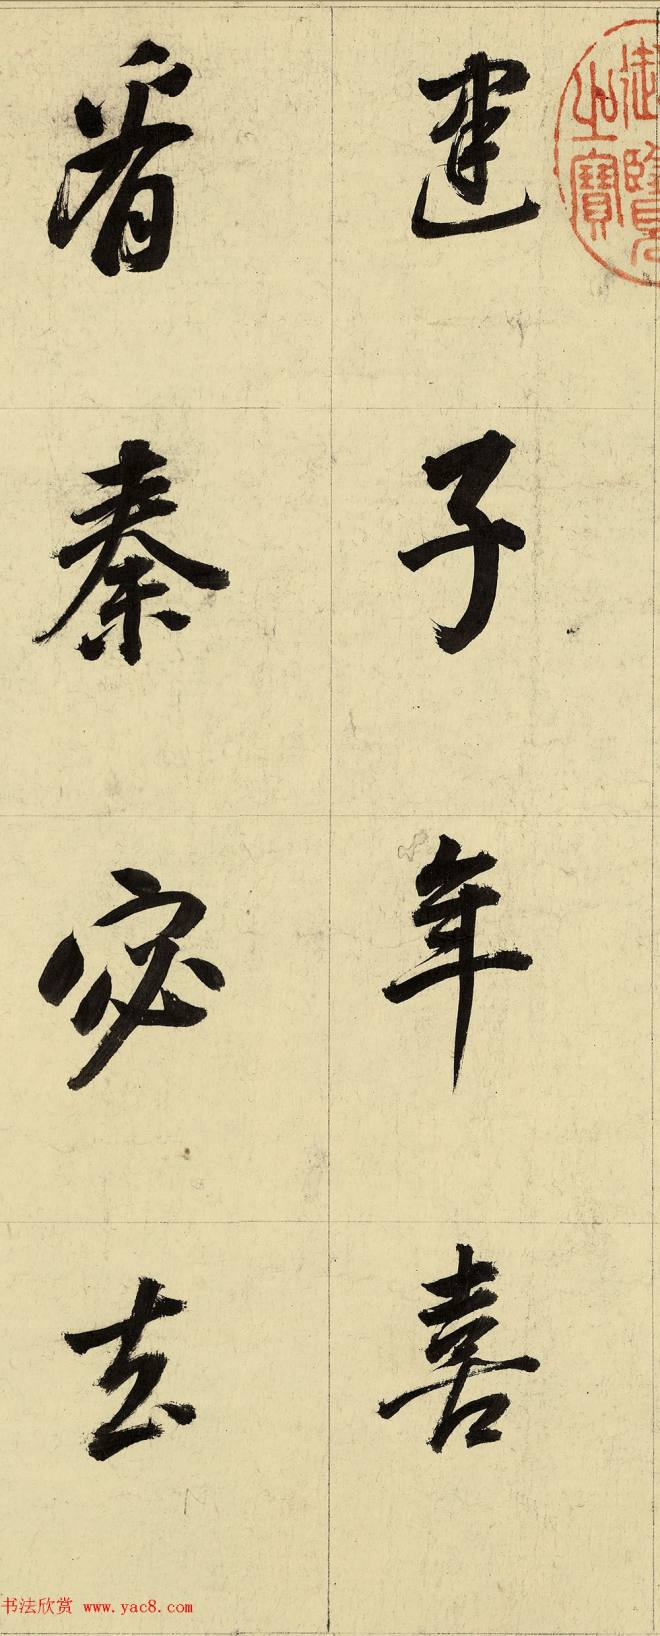 御覽之寶
建子年喜
看秦宓去
书法欣赏 www.yac8.com